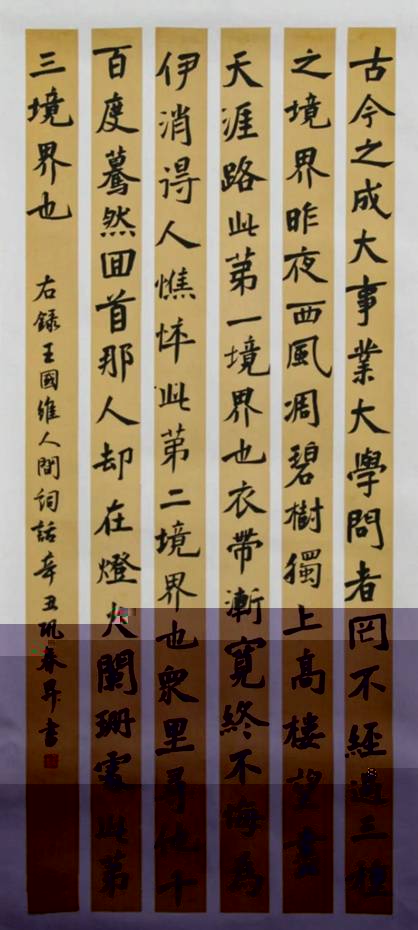 古今之成大事業大學問者罔不經過三種
之境界昨夜西風凋碧樹獨上高樓望盡
天涯路此第一境界也衣帶漸寬終不悔為
伊消得人憔悴此第二境界也眾里尋他千
百度驀然回首那人却在燈火闌珊處此第
三境界也
右錄王國維人間詞話辛丑巩春昇書